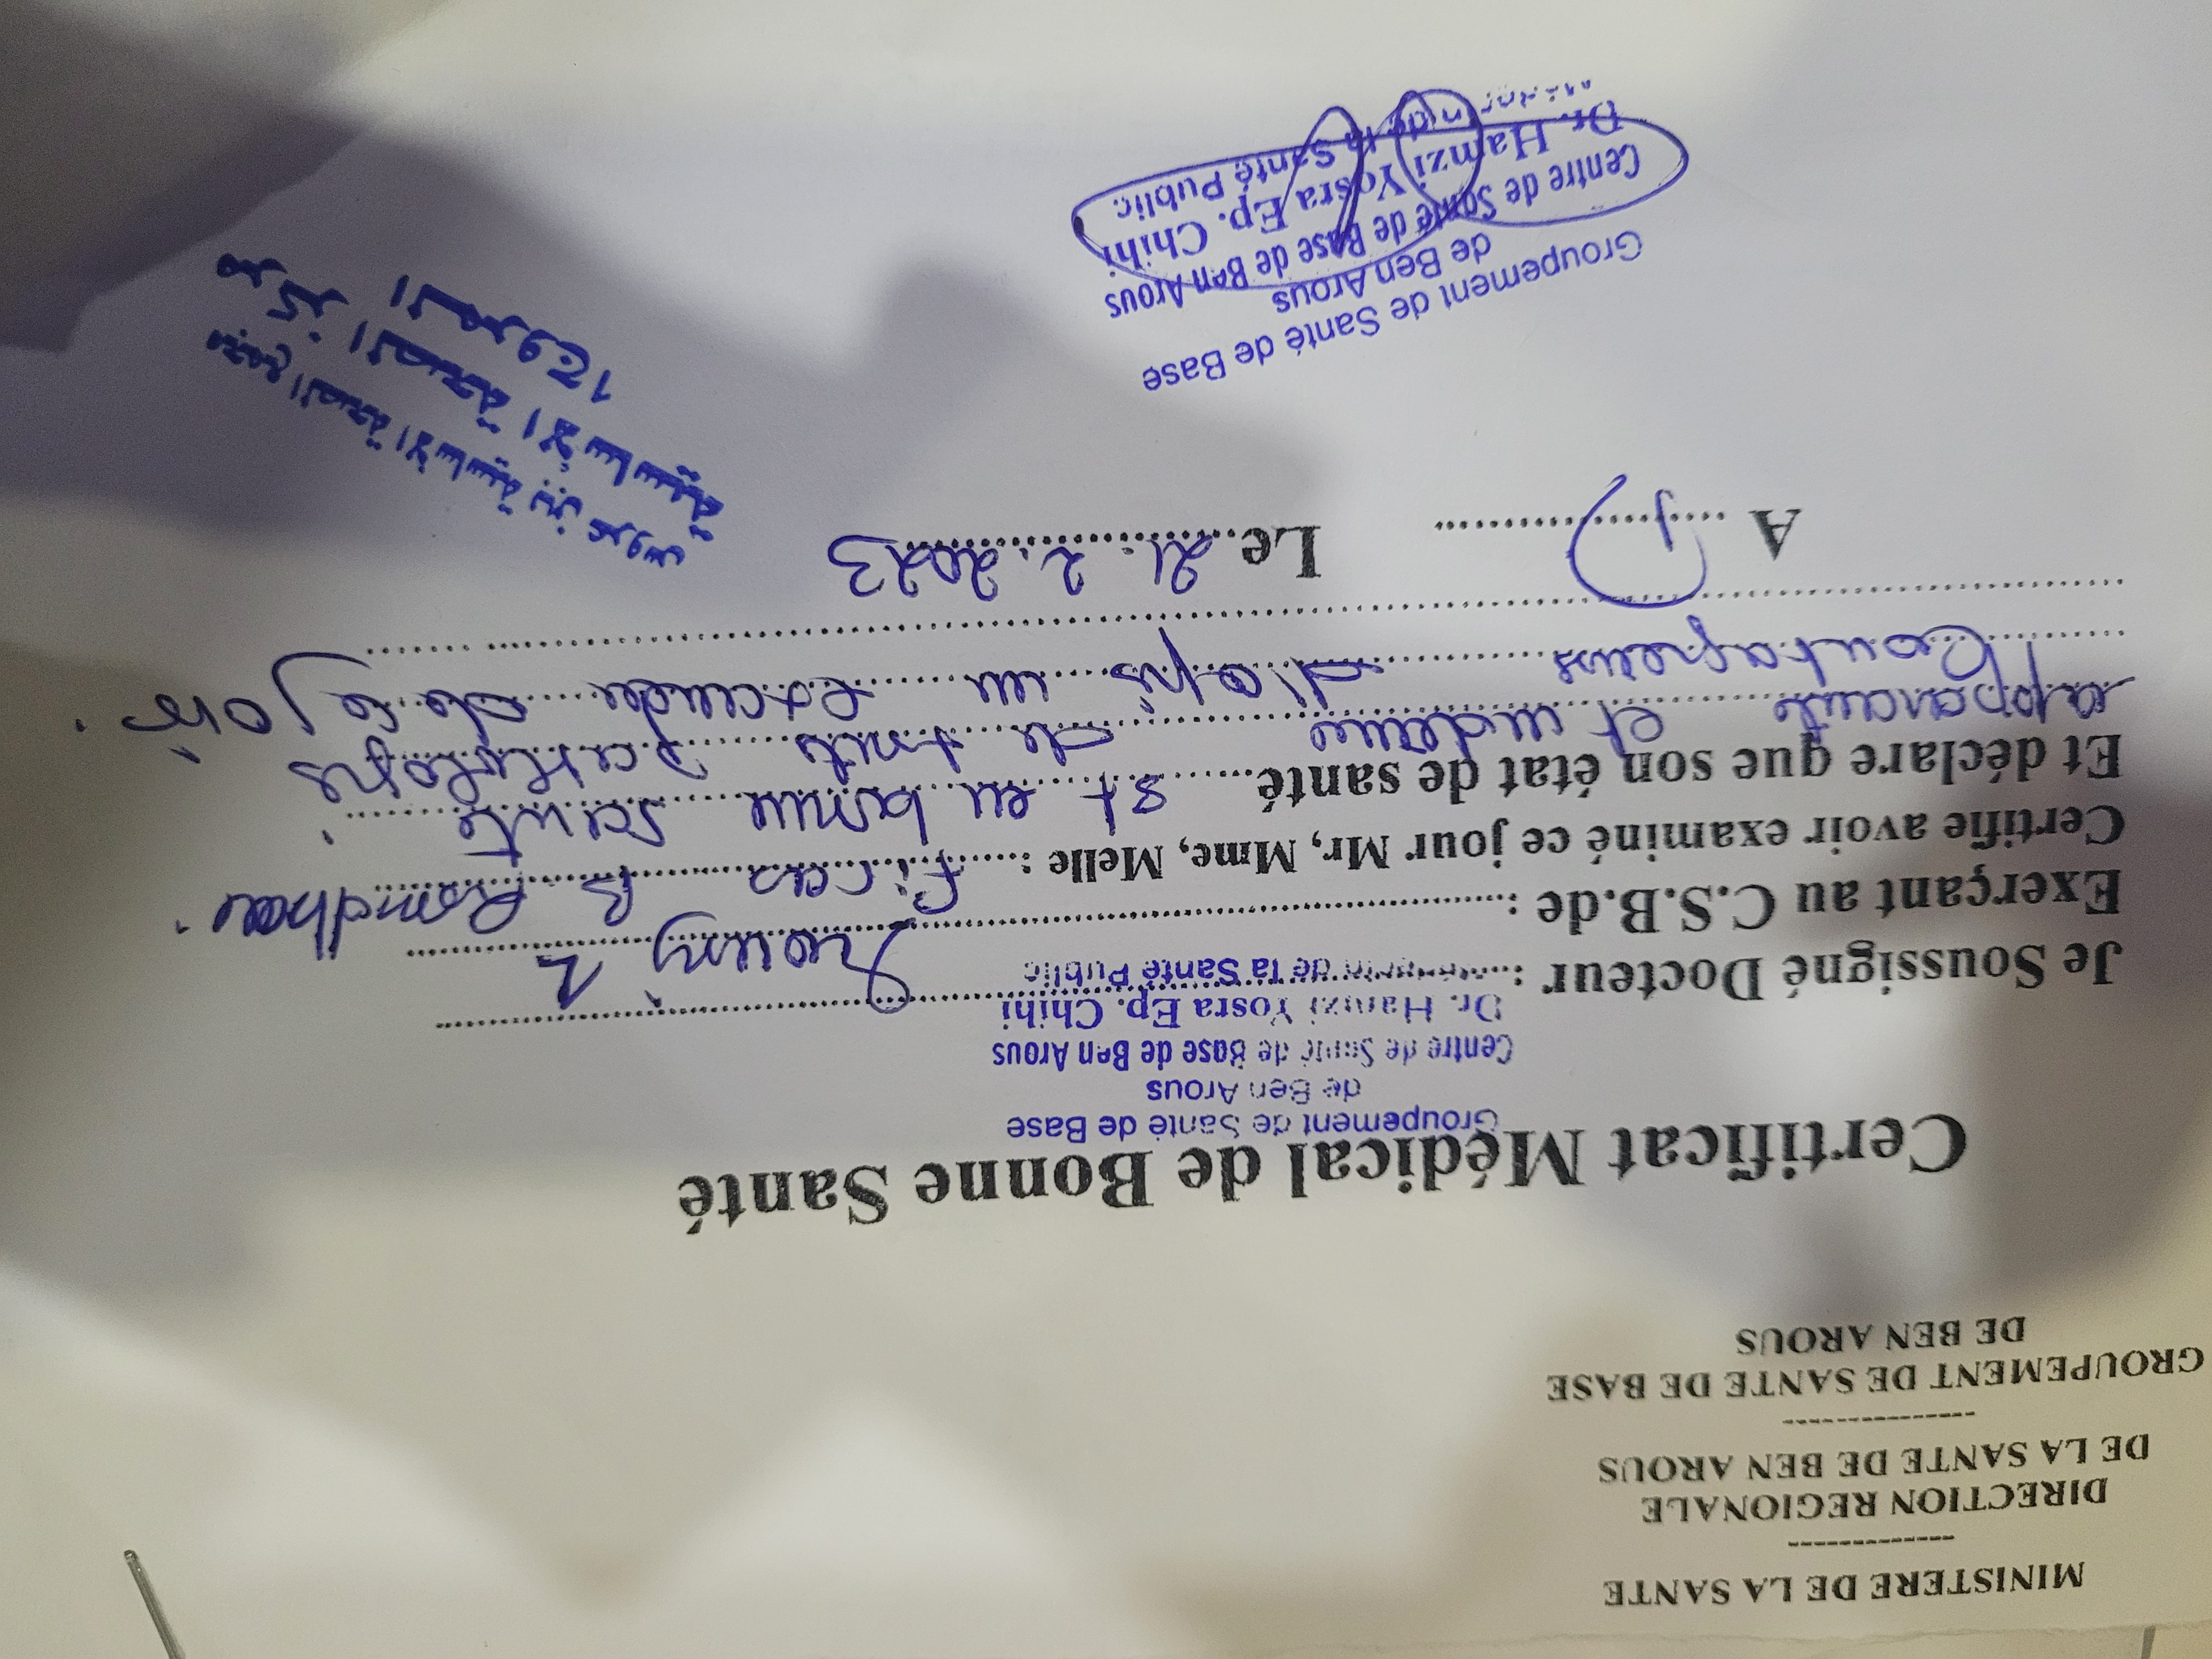 MINISTERE DE LA SANTE
--------------
DIRECTION REGIONALE
DE LA SANTE DE BEN AROUS
----------------
GROUPEMENT DE SANTE DE BASE
DE BEN AROUS
Certificat Médical de Bonne Santé
Groupement de Santé de Base
de Ben Arous
Centre de Santé de Base de Ben Arous
Dr. Hamzi Yosra Ep. Chihi
de la Santé Public
Je Soussigné Docteur :
Exerçant au C.S.B.de :
Certifie avoir examiné ce jour Mr, Mme, Melle : Firas B Romdhane.
Et déclare que son état de santé st en bonne santé
apparente et indemne de toute pathologie
Contagieuse
A Le 21.2.2023
Groupement de Santé de Base
de Ben Arous
Centre de Santé de Base de Ben Arous
Dr. Hamzi Yosra Ep. Chihi
de la Santé Public
مجمع الصحة الأساسية بن عروس
مركز الصحة الأساسية